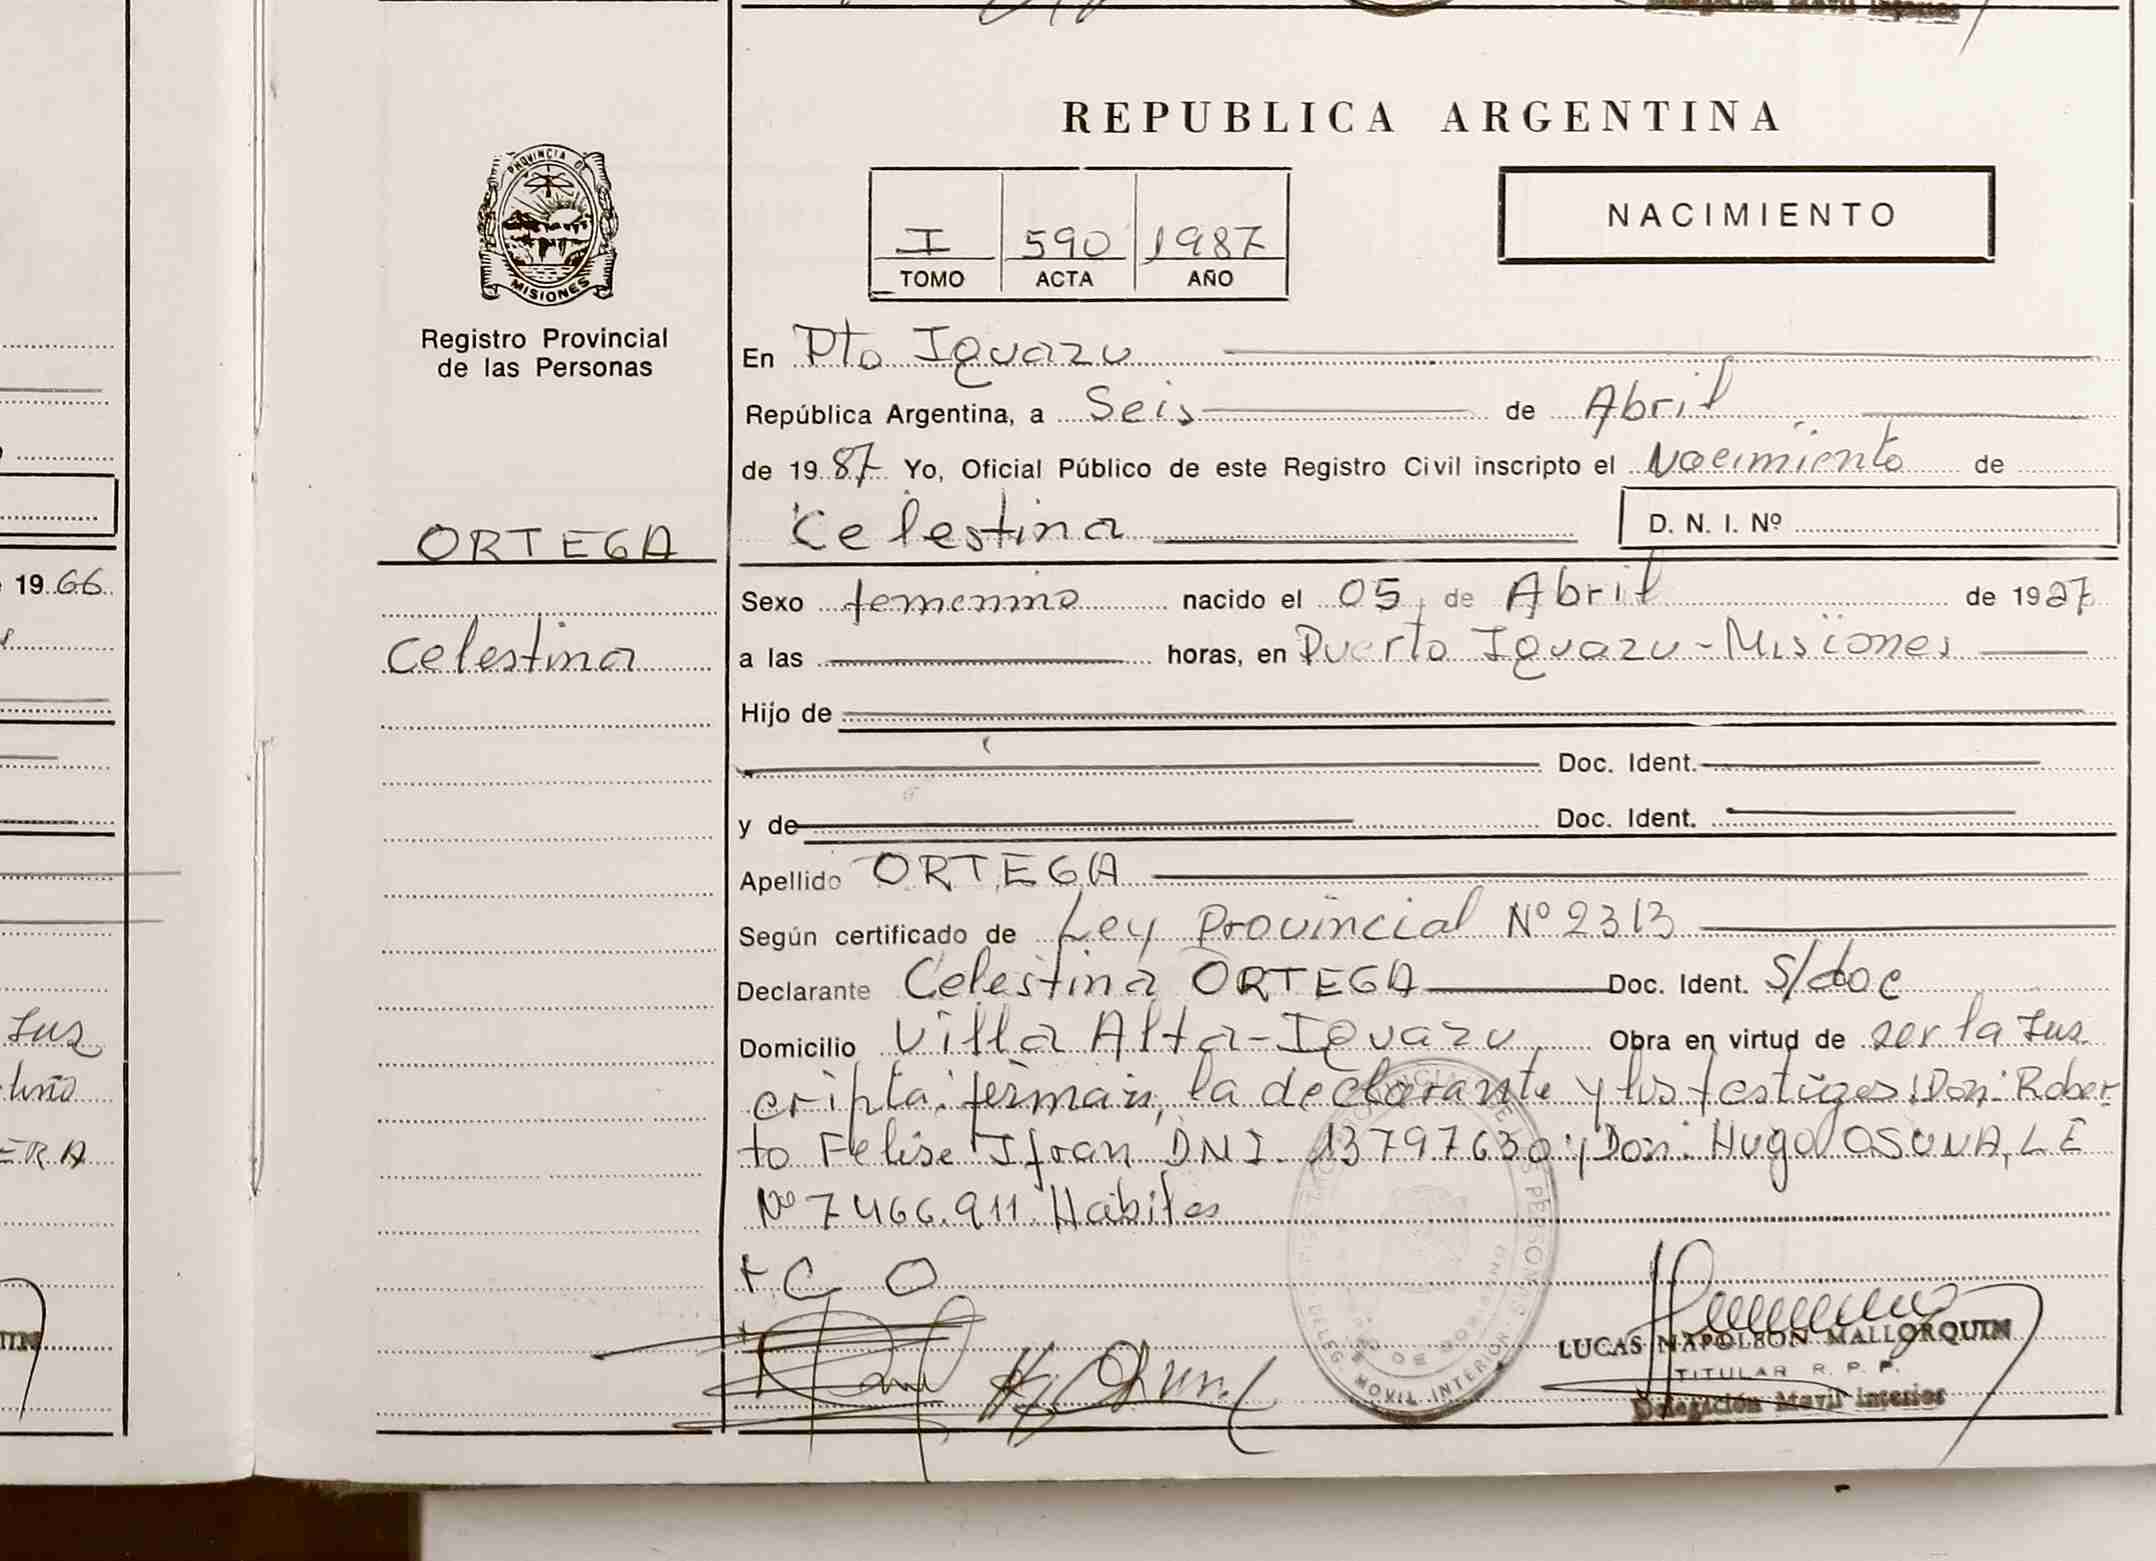 REPUBLICA ARGENTINA
PROVINCIA DE
MISIONES
Registro Provincial
de las Personas
I 590 1987
TOMO ACTA AÑO
NACIMIENTO
En Pto Iguazu
República Argentina, a Seis de Abril
de 1987 Yo, Oficial Público de este Registro Civil inscripto el Nacimiento de
Celestina D. N. I. Nº
ORTEGA
Celestina
Sexo femenino nacido el 05 de Abril de 1927
a las horas, en Puerto Iguazu - Misiones
Hijo de
Doc. Ident.
y de Doc. Ident.
Apellido ORTEGA
Según certificado de Ley Provincial Nº 2313
Declarante Celestina ORTEGA Doc. Ident. S/doc
Domicilio Villa Alta - Iguazu Obra en virtud de ser la Ins
cripta. firman, la declarante y los testigos: Don: Rober
to Felise Ifran DNI. 13797630 y Don: Hugo OSUNA, LE
Nº 7466.911. Habiles
C O
LUCAS NAPOLEON MALLORQUIN
TITULAR R. P. P.
Delegación Movil Interior
DELEG. MOVIL INTERIOR
1966
Ins
ERA